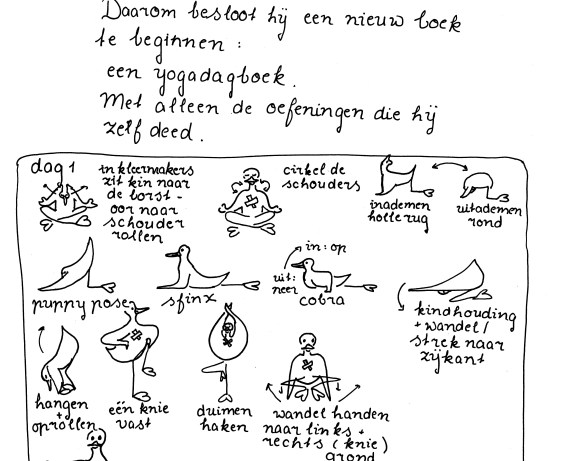 Daarom besloot hij een nieuw boek
te beginnen :
een yogadagboek.
Met alleen de oefeningen die hij
zelf deed.
dag 1
in kleermakers
zit kin naar
de borst -
oor naar
schouder
rollen
cirkel de
schouders
inademen
holle rug
uitademen
rond
puppy pose
sfinx
in: op
uit:
neer
cobra
kindhouding
+ wandel /
strek naar
zijkant
hangen
+
oprollen
één knie
vast
duimen
haken
wandel handen
naar links +
rechts (knie)
grond